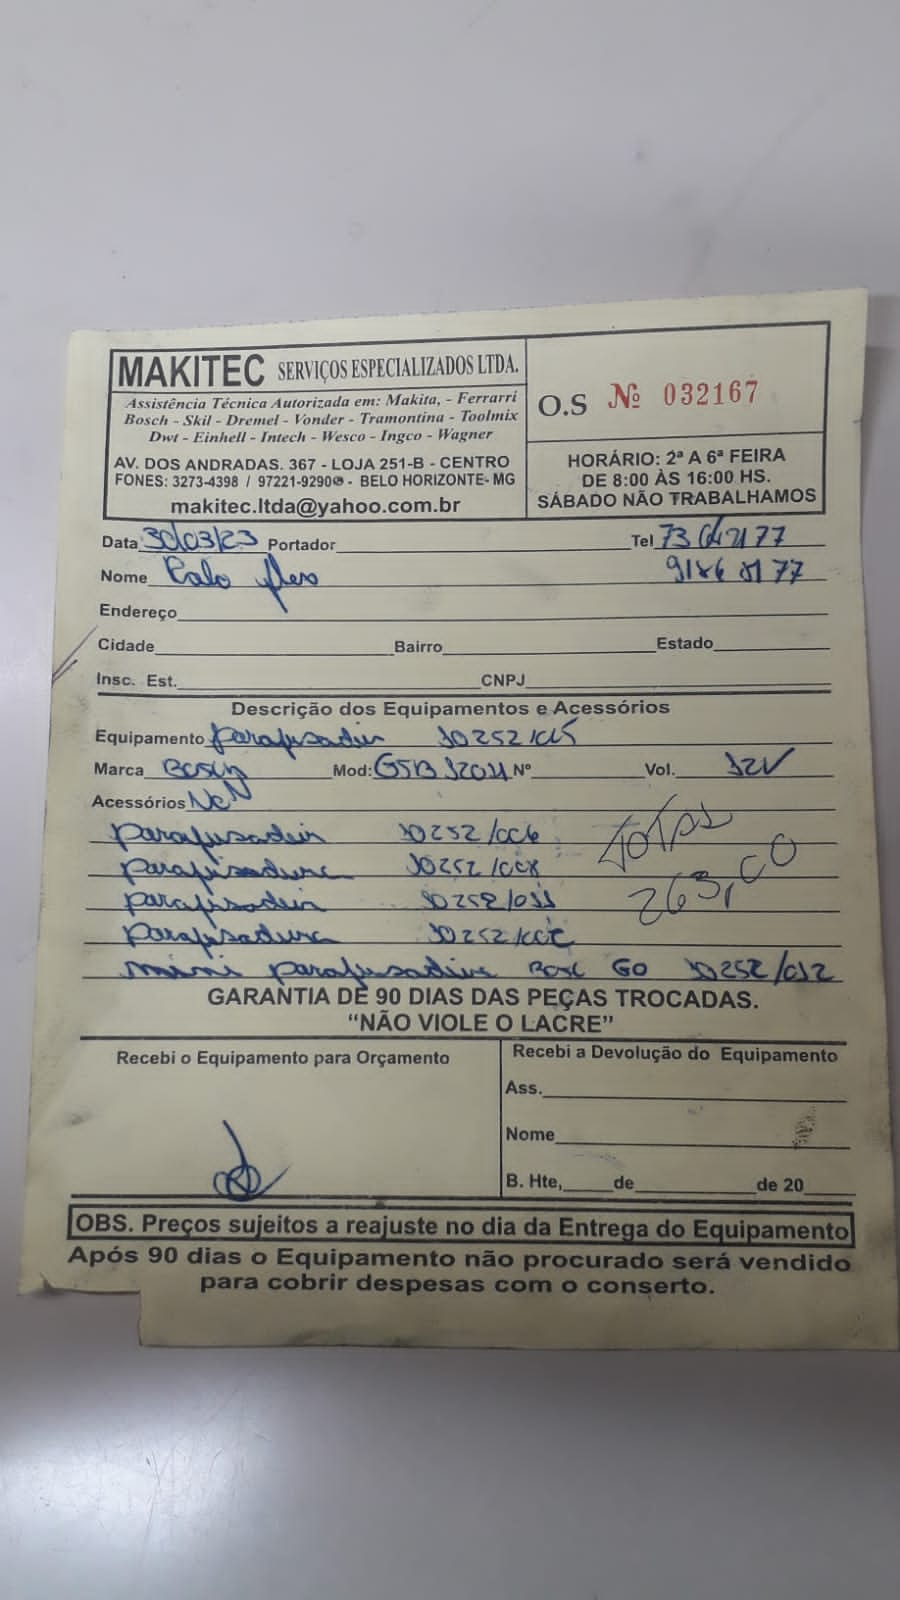 MAKITEC SERVIÇOS ESPECIALIZADOS LTDA.
Assistência Técnica Autorizada em: Makita, - Ferrarri
Bosch - Skil - Dremel - Vonder - Tramontina - Toolmix
Dwt - Einhell - Intech - Wesco - Ingco - Wagner
AV. DOS ANDRADAS. 367 - LOJA 251-B - CENTRO
FONES: 3273-4398 / 97221-9290 - BELO HORIZONTE- MG
makitec.ltda@yahoo.com.br
O.S Nº 032167
HORÁRIO: 2ª A 6ª FEIRA
DE 8:00 ÀS 16:00 HS.
SÁBADO NÃO TRABALHAMOS
Data 30/03/23 Portador Tel
Nome
Endereço
Cidade Bairro Estado
Insc. Est. CNPJ
Descrição dos Equipamentos e Acessórios
Equipamento
Marca Bosch Mod: GSB Nº Vol. 12V
Acessórios
10252/006
10252/008
10252/011
TOTAL
263,00
mini GO 10252/012
GARANTIA DE 90 DIAS DAS PEÇAS TROCADAS.
“NÃO VIOLE O LACRE”
Recebi o Equipamento para Orçamento
Recebi a Devolução do Equipamento
Ass.
Nome
B. Hte, de de 20
OBS. Preços sujeitos a reajuste no dia da Entrega do Equipamento
Após 90 dias o Equipamento não procurado será vendido
para cobrir despesas com o conserto.